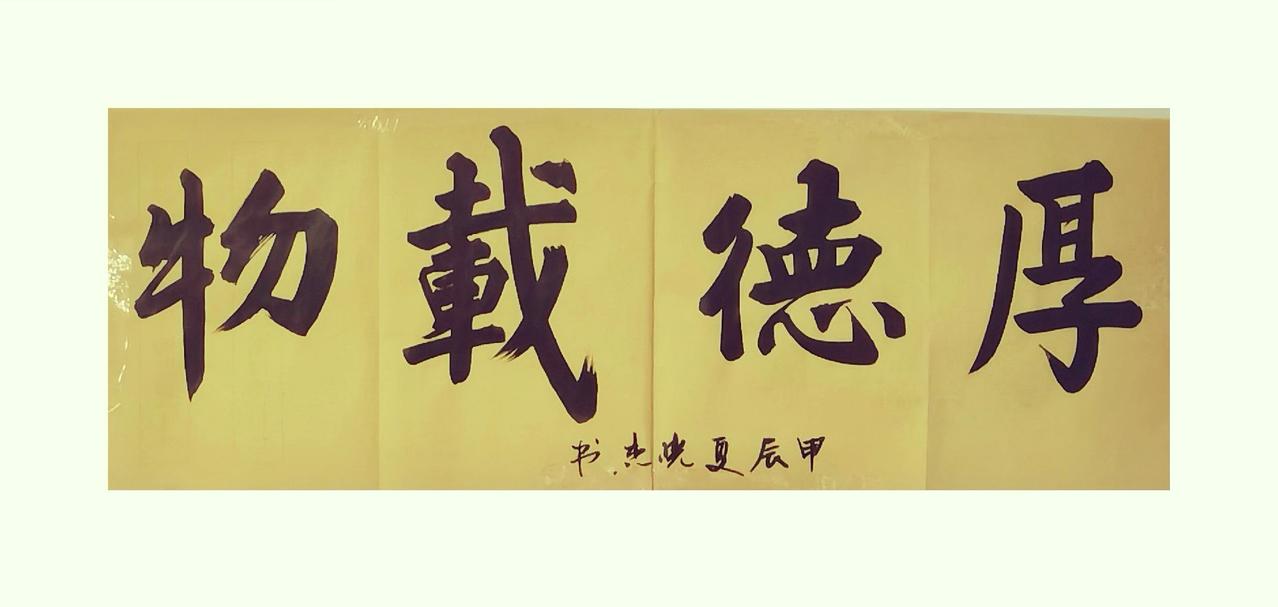 厚德載物
甲辰夏晓杰书